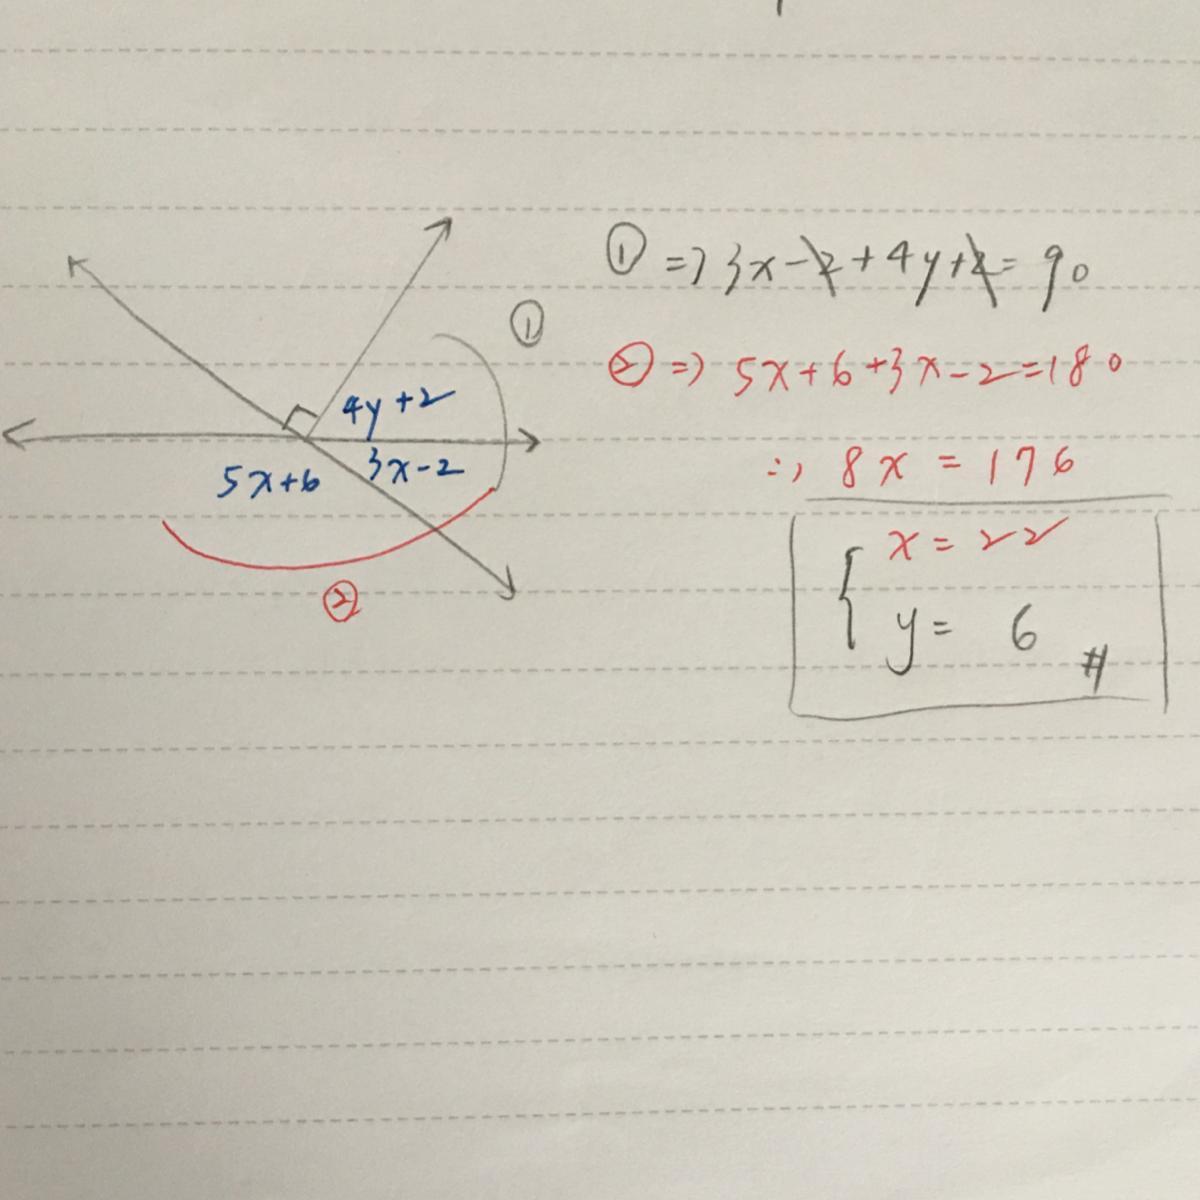 ①
4y+2
3x-2
5x+6
②
① => 3x-2+4y+2=90
② => 5x+6+3x-2=180
∴ 8x=176
x=22
y=6 #